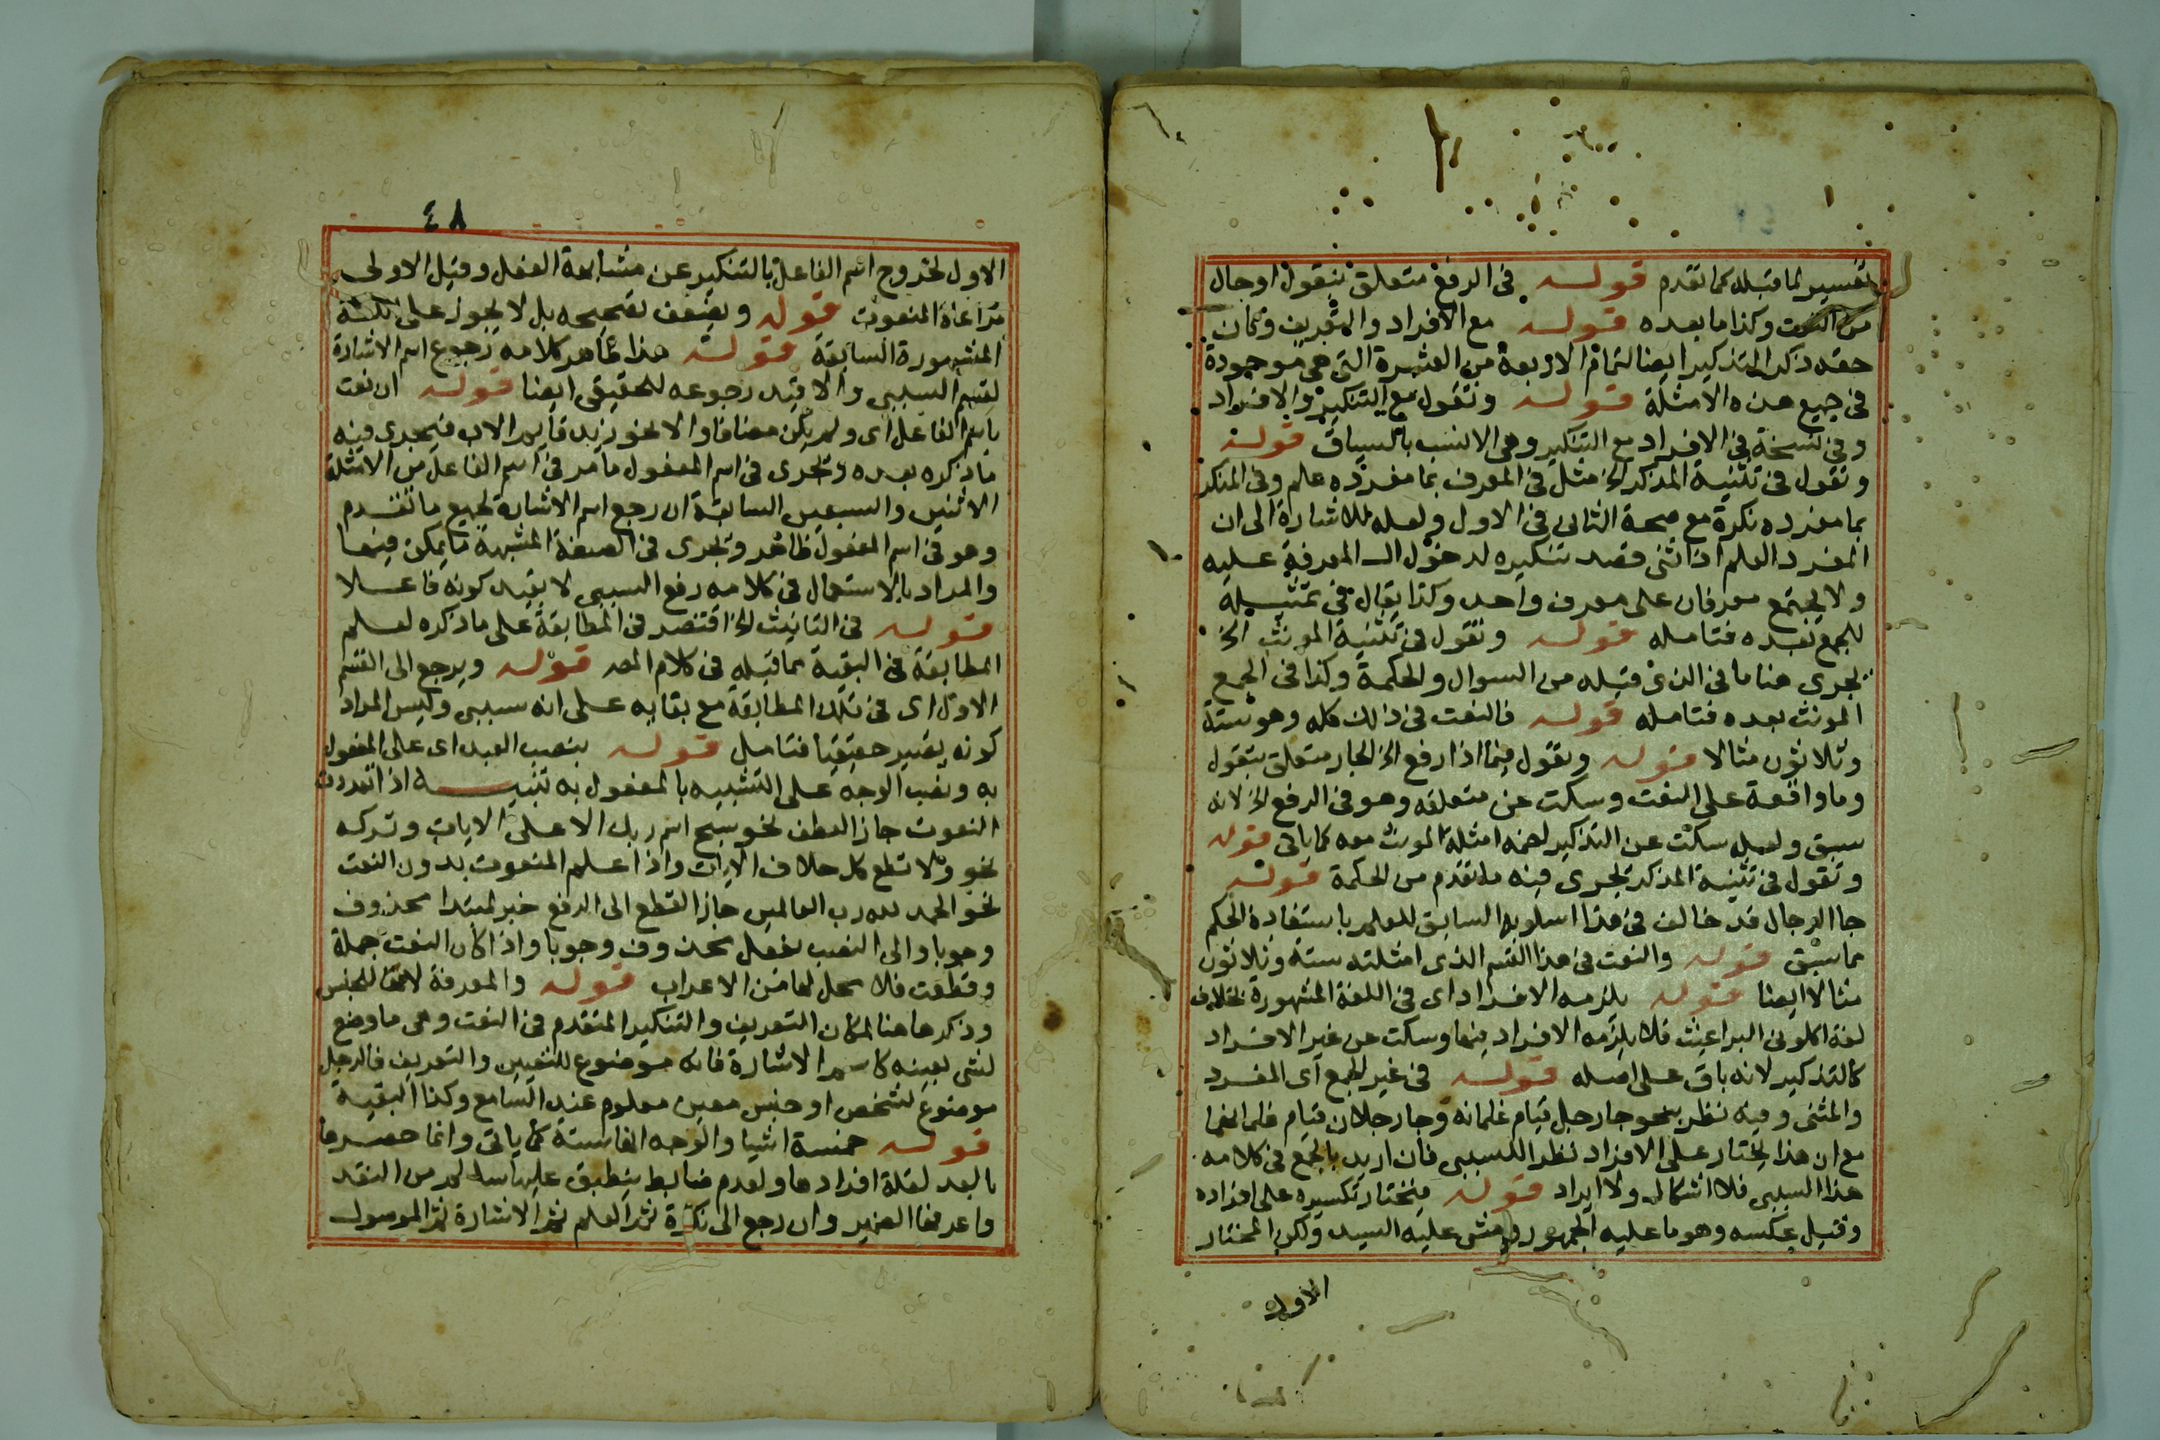 تفسير لما قبله كما تقدم قوله في الرفع متعلق بنقول او حال
من النعت وكذا ما بعده قوله مع الافراد والتعريف وكان
حقه ذكر التذكير ايضا لتمام الاربعة من العشرة التي هي موجودة
في جميع هذه الامثلة قوله وتقول مع التنكير والافراد
وفي نسخة في الافراد مع التنكير وهي الانسب بالسياق قوله
وتقول في تثنية المذكر الخ مثل في المعرف بما مفرده علم وفي المنكر
بما مفرده نكرة مع صحة الثاني في الاول ولعله للاشارة الى ان
المفرد العلم اذا ثنى قصد تنكيره لدخول ال المعرفة عليه
ولا يجتمع معرفان على معرف واحد وكذا يقال في تمثيله
للجمع بعده فتامله قوله وتقول في تثنية المونث الخ
يجرى هنا ما في الذى قبله من السوال والحكمة وكذا في الجمع
المونث بعده فتامله قوله فالنعت في ذلك كله وهو ستة
وثلاثون مثالا قوله وتقول فيما اذا رفع الخ الجار متعلق بتقول
وما واقعة على النعت وسكت عن متعلقه وهو في الرفع الخ لانه
سبق ولعله سكت عن التذكير لضمه امثلة المونث معه كما ياتي قوله
وتقول في تثنية المذكر يجرى فيه ما تقدم من الحكمة قوله
جا الرجال قد خالف في هذا اسلوبه السابق للعلم باستفادة الحكم
مما سبق قوله والنعت في هذا القسم الذي امثلته ستة وثلاثون
مثالا ايضا قوله يلزمه الافراد اى في اللغة المشهورة بخلاف
لغة اكلوني البراغيث فلا يلزمه الافراد فيها وسكت عن غير الافراد
كالتذكير لانه باق على اصله قوله في غير الجمع اى المفرد
والمثنى وفيه نظر بنحو جا رجل قيام غلمانه وجا رجلان قيام غلمانهما
مع ان هذا يختار على الافراد نظرا للسببى فان اريد بالجمع في كلامه
هذا السببى فلا اشكال ولا ايراد قوله فيختار تكسيره على افراده
وقيل عكسه وهو ما عليه الجمهور ومشى عليه السيد ولكن المختار
الاول
٤٨
الاول لخروج اسم الفاعل بالتنكير عن مشابهة الفعل وقيل الاولى
مراعاة المنعوت قوله ويضعف تصحيحه بل لا يجوز على اللغة
المشهورة السابقة قوله هذا ظاهر كلامه رجوع اسم الاشارة
لقسم السببى والا قيد رجوعه للحقيقى ايضا قوله ان نعت
باسم الفاعل اى ولم يكن مضافا والا نحو زيد قايم الاب فيجرى فيه
ما ذكره بعده ويجرى في اسم المفعول ما مر في اسم الفاعل من الامثلة
الاثنين والسبعين السابقة ان رجع اسم الاشارة لجميع ما تقدم
وهو في اسم المفعول ظاهر ويجرى في الصفة المشبهة ما يمكن فيها
والمراد بالاستعمال في كلامه رفع السببى لا بقيد كونه فاعلا
قوله في التانيث الخ اقتصر في المطابقة على ما ذكره لعلم
المطابقة في البقية مما قبله في كلام المص قوله ويرجع الى القسم
الاول اى في تلك المطابقة مع بقايه على انه سببى وليس المراد
كونه يصير حقيقيا فتامل قوله بنصب العبد اى على المفعول
به ونصب الوجه على التشبيه بالمفعول به تنبيه اذا تعددت
النعوت جاز العطف نحو سبح اسم ربك الاعلى الايات وتركه
نحو ولا تطع كل حلاف الايات واذا علم المنعوت بدون النعت
نحو الحمد لله رب العالمين جاز القطع الى الرفع خبر لمبتدا محذوف
وجوبا والى النصب بفعل محذوف وجوبا واذا كان النعت جملة
وقطعت فلا محل لها من الاعراب قوله والمعرفة لامها للجنس
وذكرها هنا لمكان التعريف والتنكير المتقدم في النعت وهى ما وضع
لشى بعينه كاسم الاشارة فانه موضوع للتعيين والتعريف فالرجل
موضوع لشخص او جنس معين معلوم عند السامع وكذا البقية
قوله خمسة اشيا والوجه انها ستة كما ياتى وانما حصرها
بالعد لقلة افرادها ولعدم ضابط ينطبق عليها سالم من النقد
واعرفها الضمير وان رجع الى نكرة ثم العلم ثم الاشارة ثم الموصول